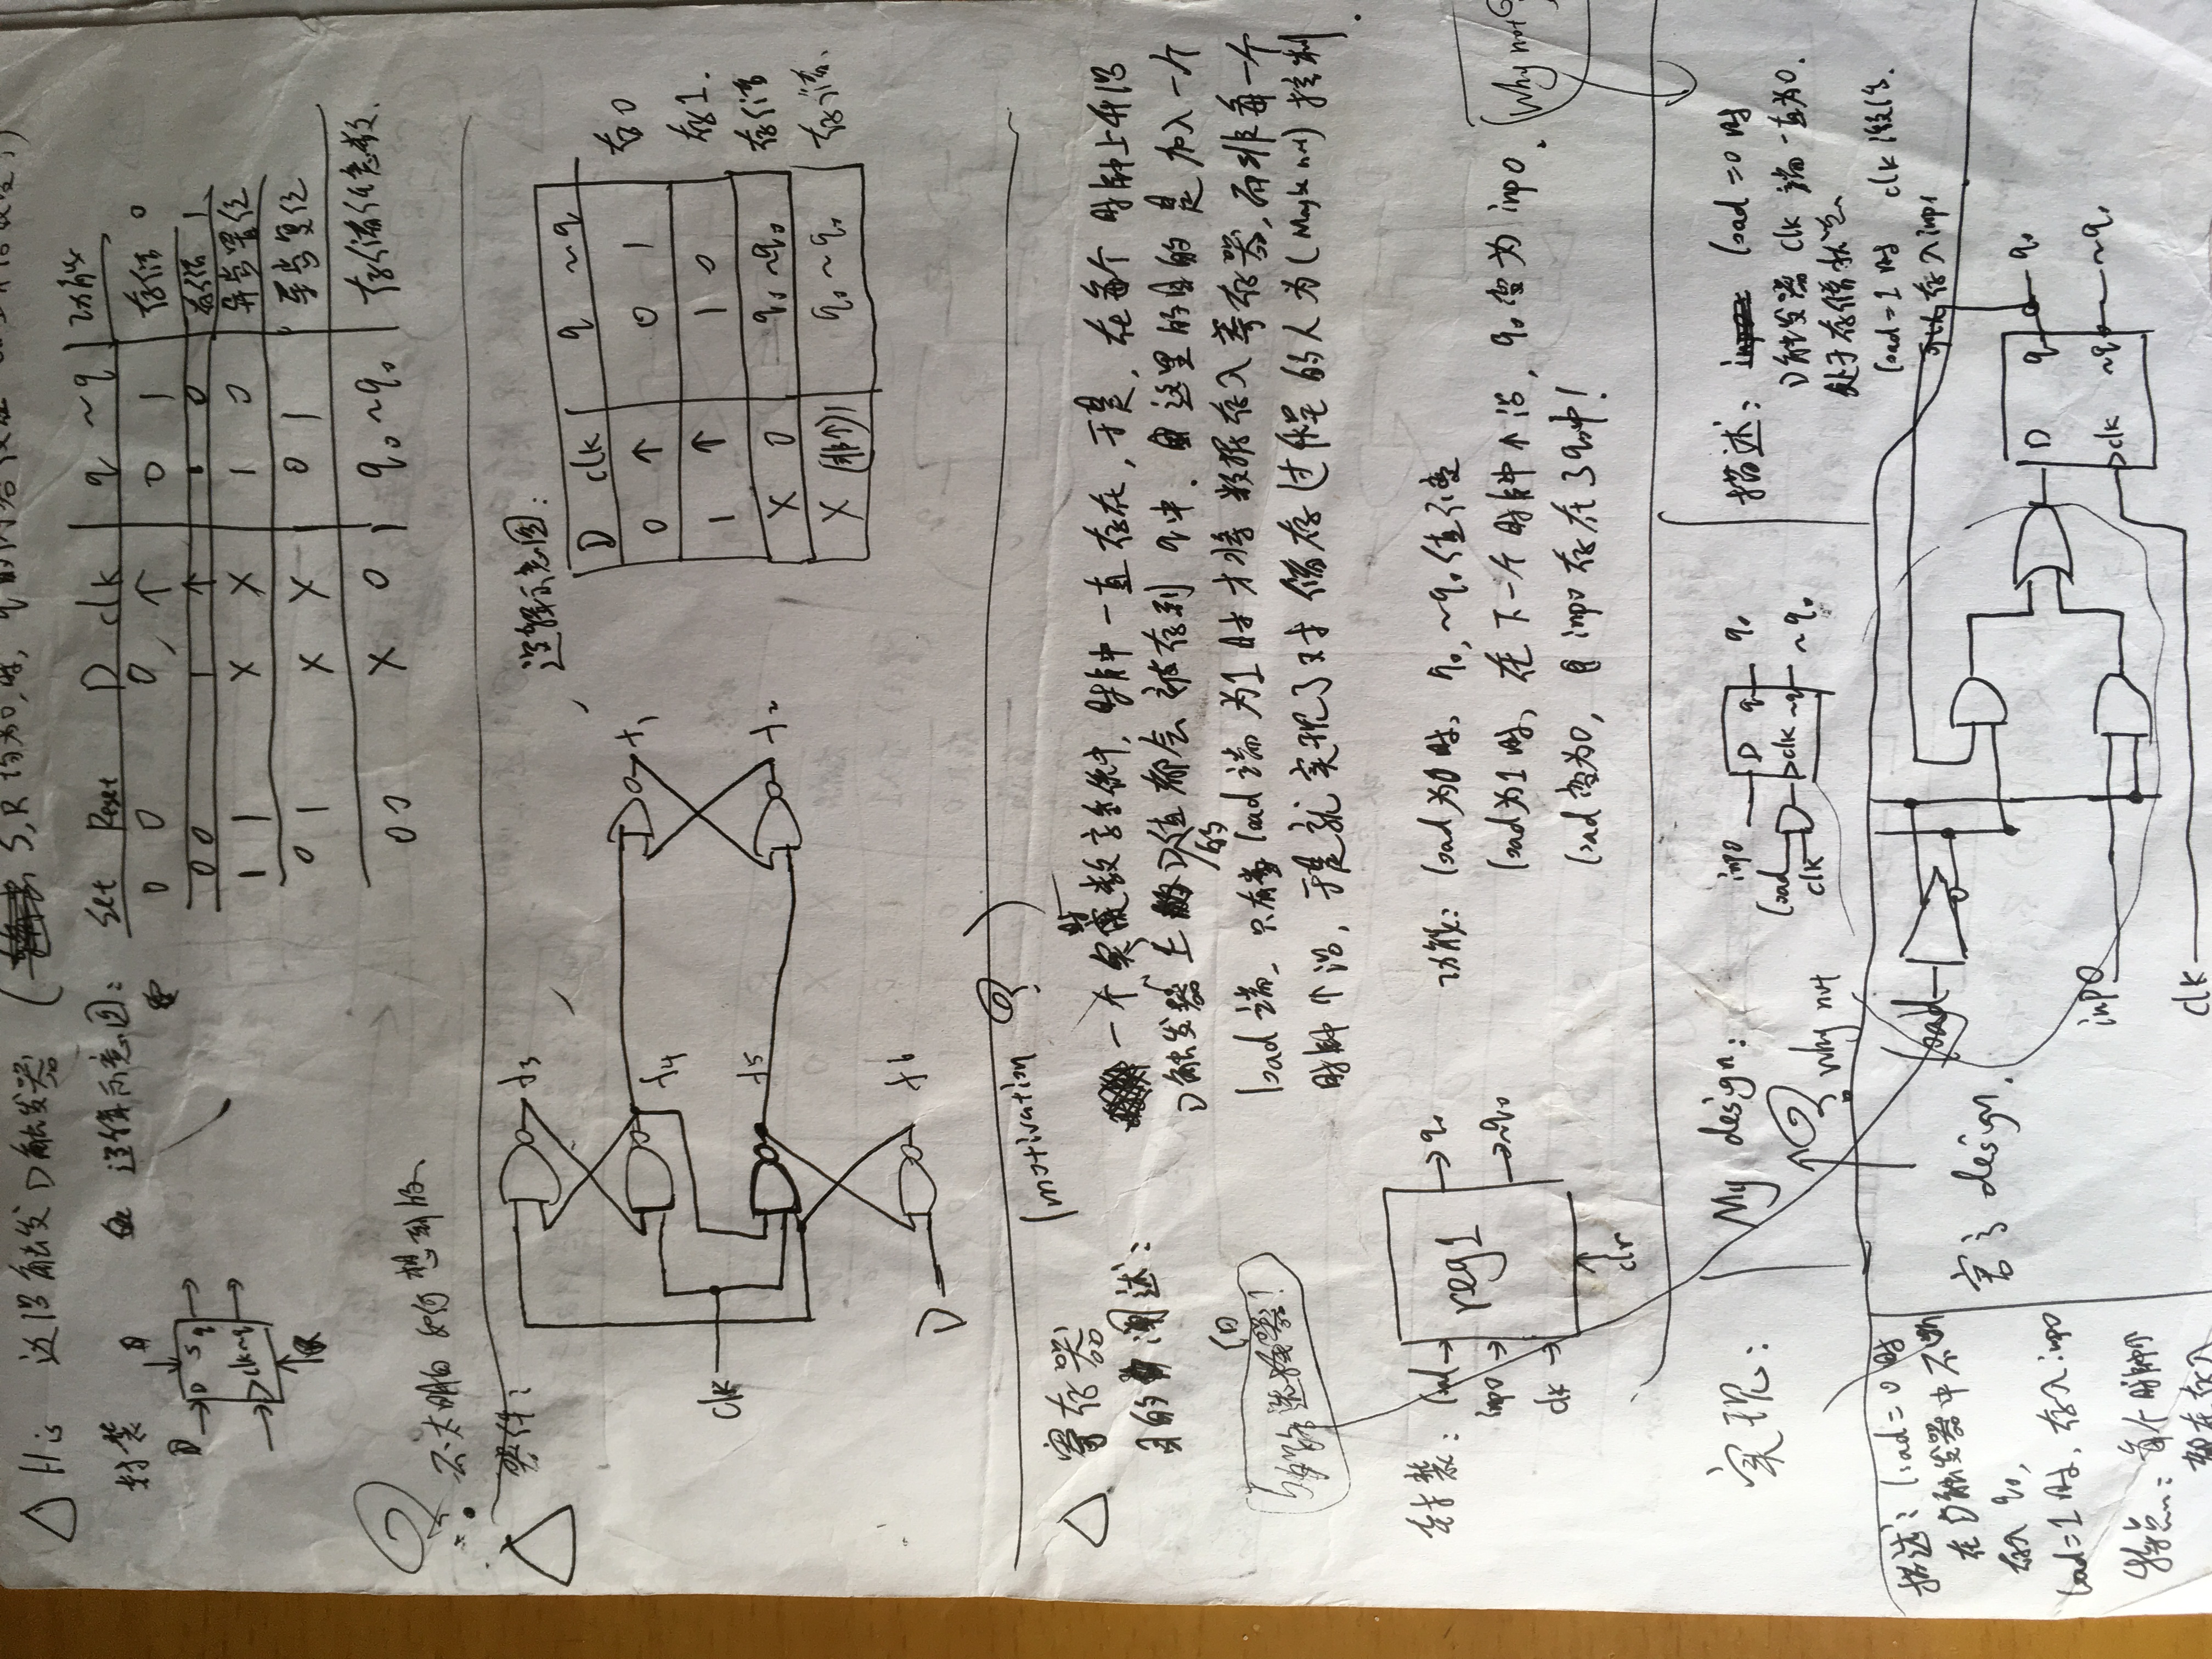 △ His 边沿触发D触发器 ( S,R均为0,时, q的内容仅在
封装
逻辑示意图:
Set Reset D clk q ~q 功能
0 0 0 ↑ 0 1 存储 0
0 0 1 ↑ 1 0 存储 1
1 1 X X 1 0 异步置位
0 1 X X 0 1 异步复位
0 0 X 0 q₀ ~q₀ 存储任意数.
D
D S q
clk ~q
R
? 不太明白如何想到的
△ 器件:
f3
f4
clk
f5
f1
f2
D
f6
逻辑示意图:
D clk q ~q
0 ↑ 0 1 存0
1 ↑ 1 0 存1.
X 0 q₀ ~q₀ 存储
X (非↑)1 q₀ ~q₀ 存储.
(motivation ?)
△ 寄存器
目的阐述:
一个实际数字系统中, 时钟一直存在, 于是, 在每个时钟上升沿
D触发器上的D值都会被存到q中. 这里的目的是加入一个
load端, 只有当load端为1时才将数据存入寄存器, 而非每一个
时钟↑沿, 于是就实现了对储存过程的人为(Maybe not)控制.
多路选择器!
封装:
load
inp0
clk
reg1
clr
q₀
~q₀
功能: load为0时, q₀, ~q₀值不变
load为1时, 在下一个时钟↑沿, q₀变为inp0.
load变为0, inp0存在了q₀中!
Why not?
实现:
My design:
inp0
load
clk
D q
clk ~q
q₀
~q₀
? why not
描述: load=0时
D触发器 clk 端一直为0.
处于存储状态
load=1时 clk
存入inp1
描述: load=0时
在D触发器中不断
存入 q₀,
load=1时, 存入inp0
特点: 每个时钟↑
都在存入
design.
load
inp0
clk
D q
clk ~q
q₀
~q₀